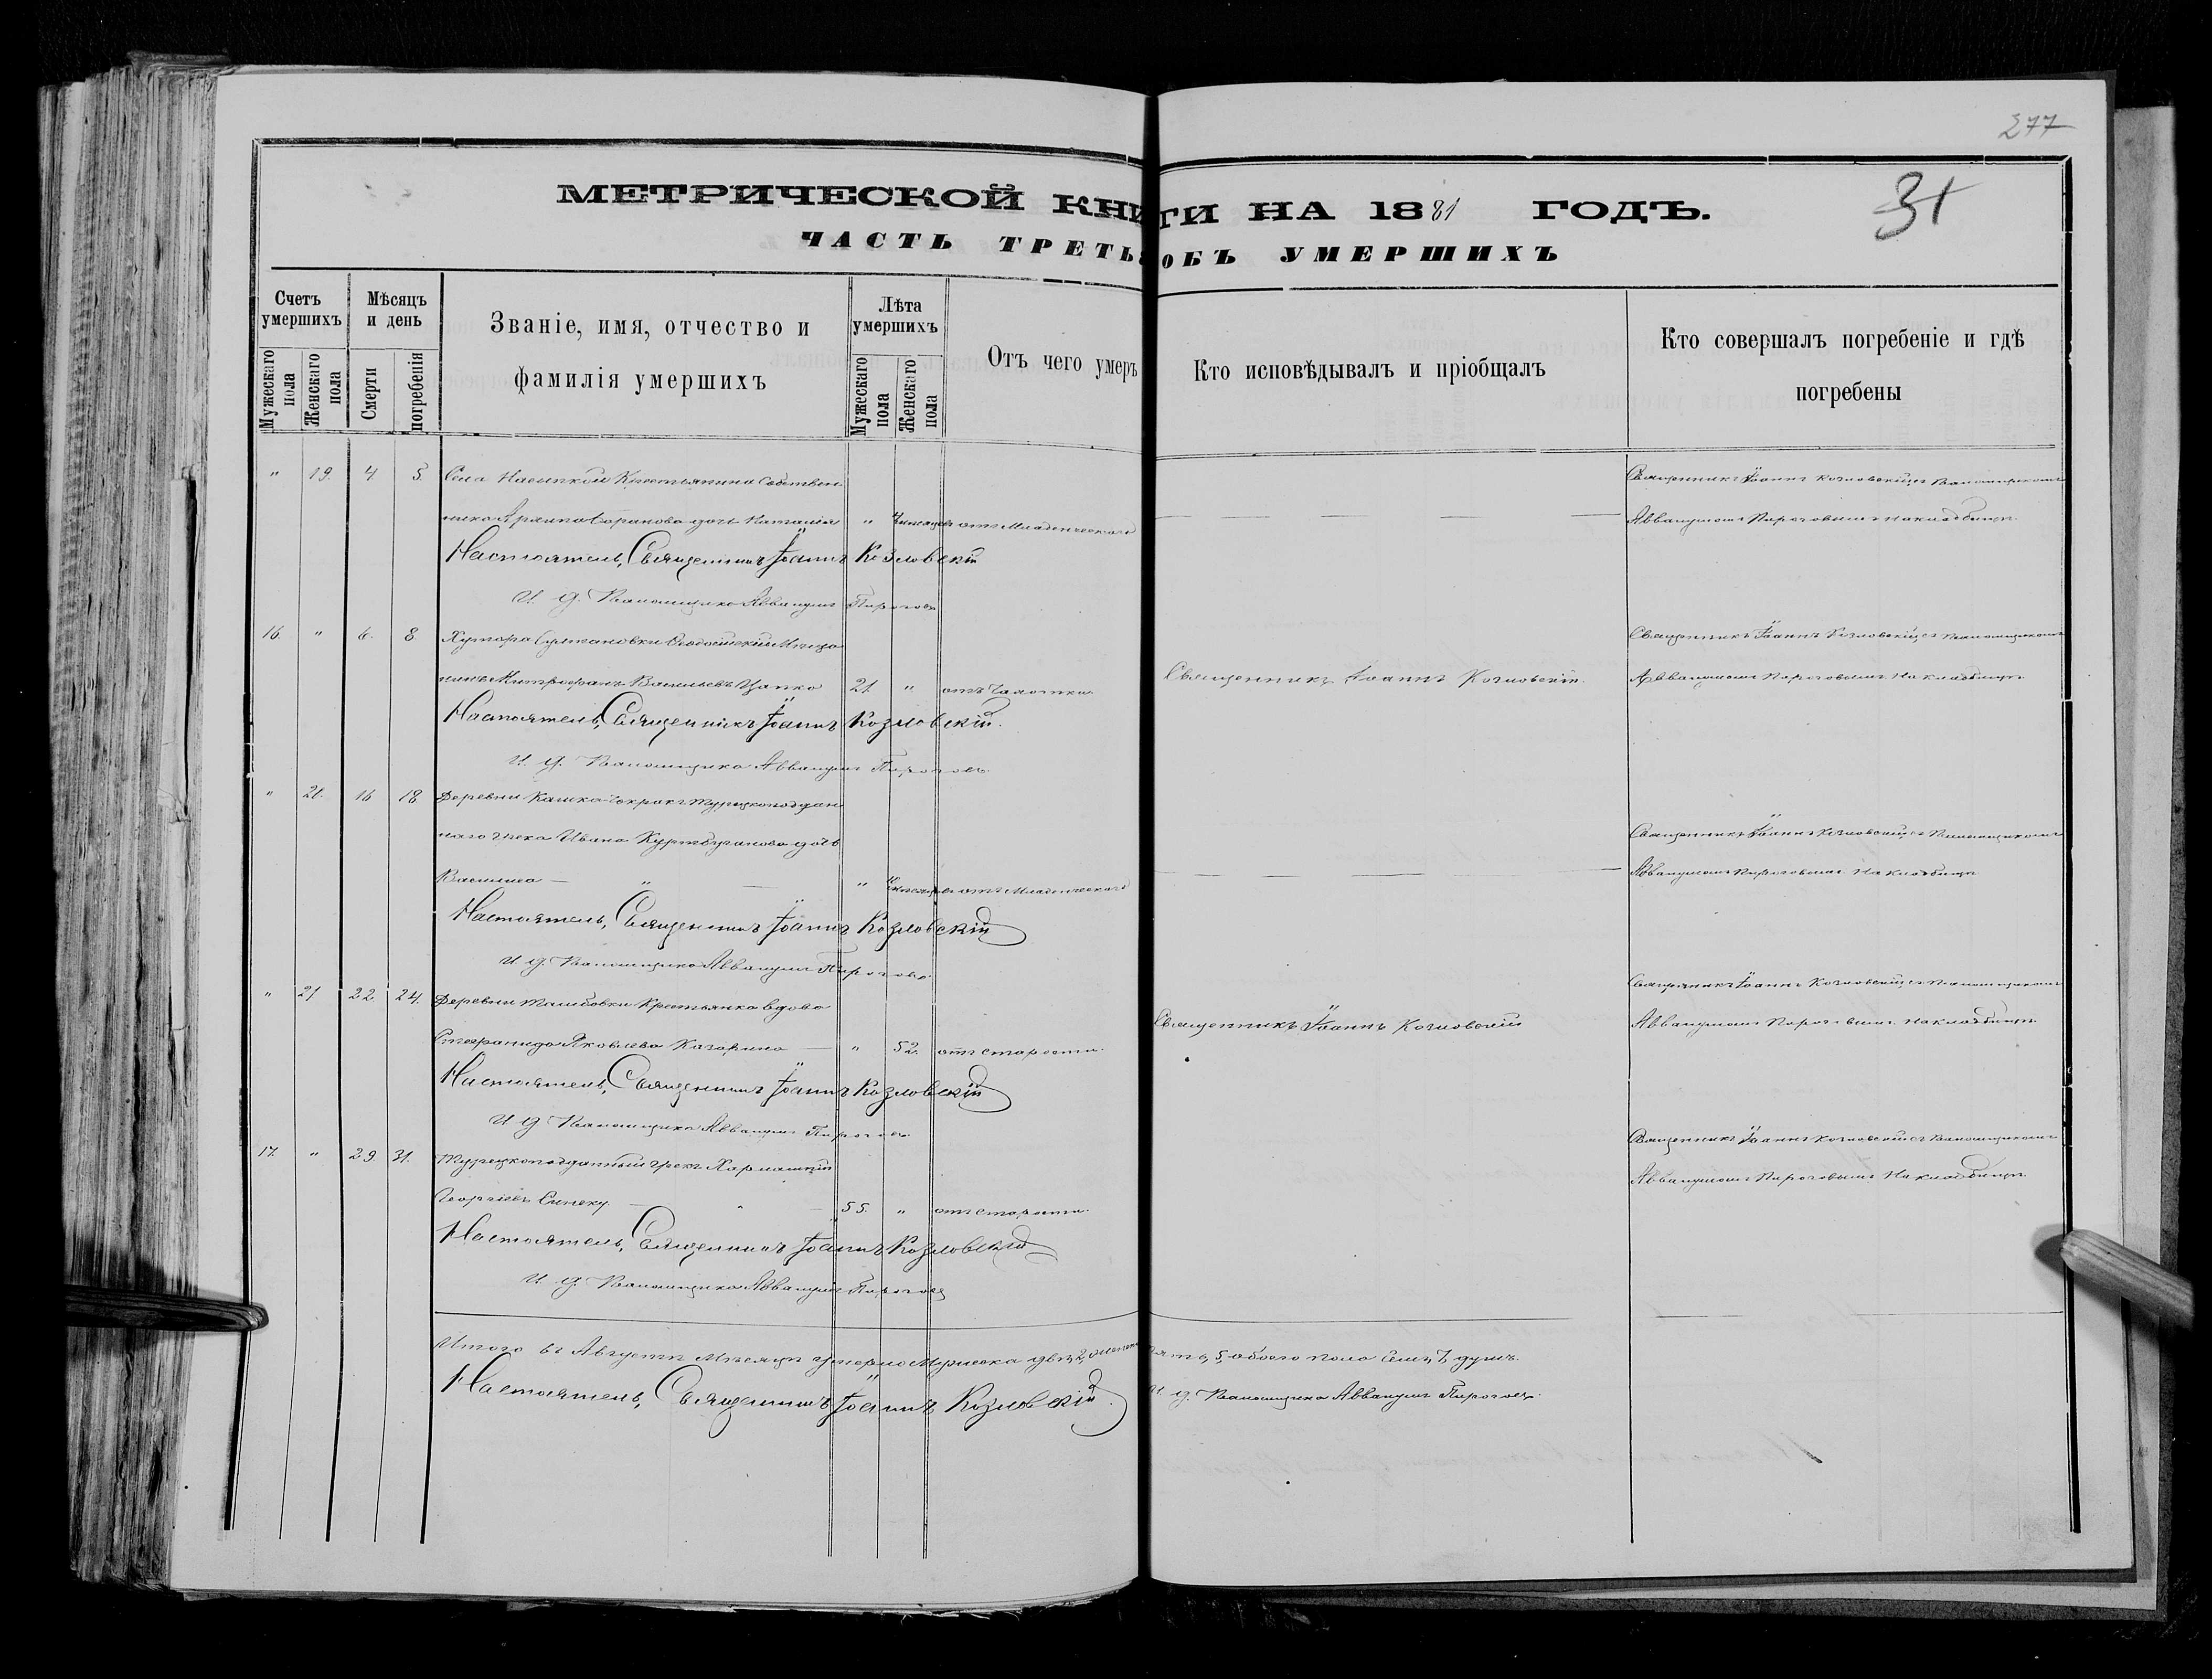 277
31
МЕТРИЧЕСКОЙ КНИГИ НА 1881 ГОДЪ.
ЧАСТЬ ТРЕТЬЯ ОБЪ УМЕРШИХЪ
Счетъ умершихъ
Мужескаго пола
Женскаго пола
Мѣсяцъ и день
Смерти
погребенія
Званіе, имя, отчество и
фамилія умершихъ
Лѣта умершихъ
Мужескаго пола
Женскаго пола
Отъ чего умеръ
Кто исповѣдывалъ и пріобщалъ
Кто совершалъ погребеніе и гдѣ
погребены
" 19. 4 5. Села Насыпкой Крестьянина Собствен-
Священникъ Іоаннъ Козловскій съ Псаломщикомъ
дочь Наталія " отъ Младенческаго
Аввакумомъ Пироговымъ на кладбищѣ
Настоятель, Священникъ Іоаннъ Козловскій
И. д. Псаломщика Аввакумъ Пироговъ
16. " 6. 8. Хутора Султановки Ѳеодосійскій Мѣща-
Священникъ Іоаннъ Козловскій съ Псаломщикомъ
нинъ Митрофанъ Васильевъ Цапко 21. " отъ Чахотки
Священникъ Іоаннъ Козловскій.
Аввакумомъ Пироговымъ на кладбищѣ
Настоятель, Священникъ Іоаннъ Козловскій.
И. д. Псаломщика Аввакумъ Пироговъ.
" 20. 16 18. Деревни Турецкоподдан-
наго Грека Ивана дочь
Священникъ Іоаннъ Козловскій съ Псаломщикомъ
Василиса " отъ Младенческаго
Аввакумомъ Пироговымъ на кладбищѣ
Настоятель, Священникъ Іоаннъ Козловскій
И. д. Псаломщика Аввакумъ Пироговъ.
" 21 22 24. Деревни Крестьянка вдова
Священникъ Іоаннъ Козловскій съ Псаломщикомъ
Стефанида Яковлева " 52. отъ старости.
Священникъ Іоаннъ Козловскій
Аввакумомъ Пироговымъ на кладбищѣ
Настоятель, Священникъ Іоаннъ Козловскій
И. д. Псаломщика Аввакумъ Пироговъ.
17. " 29. 31. Турецкоподданный грекъ Харлампій
Священникъ Іоаннъ Козловскій съ Псаломщикомъ
Георгіевъ 55. " отъ старости.
Аввакумомъ Пироговымъ на кладбищѣ
Настоятель, Священникъ Іоаннъ Козловскій
И. д. Псаломщика Аввакумъ Пироговъ
Итого въ Августѣ Мѣсяцѣ умерло Мужеска два, 2, женска пять, 5, обоего пола Семь, 7, душъ.
Настоятель, Священникъ Іоаннъ Козловскій. И. д. Псаломщика Аввакумъ Пироговъ.